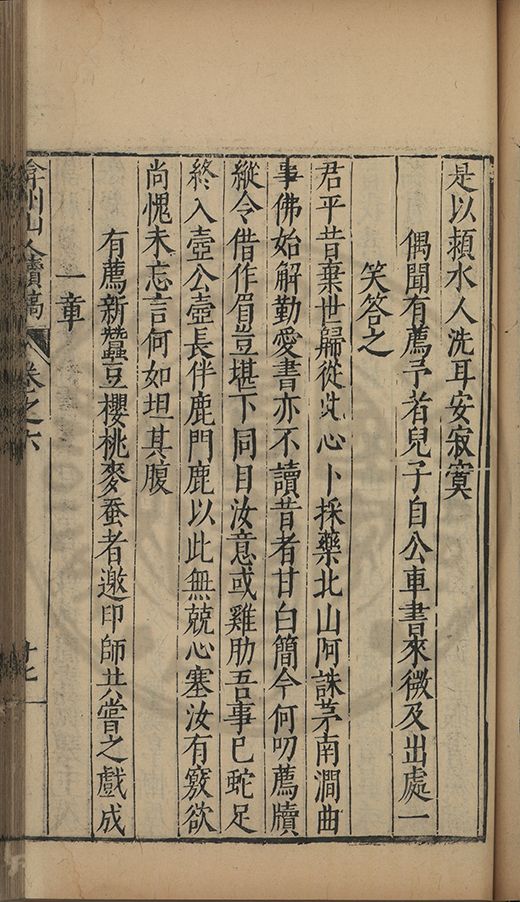 是以頴水人洗耳安寂寞
偶聞有薦予者兒子自公車書來微及出處一
笑答之
君平昔棄世歸從此心卜採藥北山阿誅茅南澗曲
事佛始解勤愛書亦不讀昔者甘白簡今何叨薦牘
縱令借作眉豈堪下同目汝意或雞肋吾事已蛇足
終入壺公壺長伴鹿門鹿以此無兢心塞汝有竅欲
尚愧未忘言何如坦其腹
有薦新蠶豆櫻桃麥蚕者邀印師共嘗之戲成
一章
弇州山人續稿 卷之六 廿七